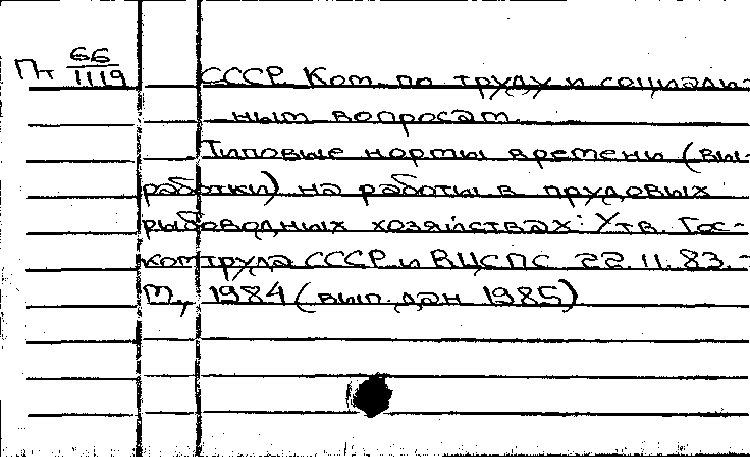 Пт 66
1119
СССР. Ком. по труду и социаль-
ным вопросам.
Типовые нормы времени (вы-
работки) на работы в прудовых
рыбоводных хозяйствах: Утв. Гос-
комтруда СССР и ВЦСПС 22.11.83. -
М., 1984 (вып. дан 1985)